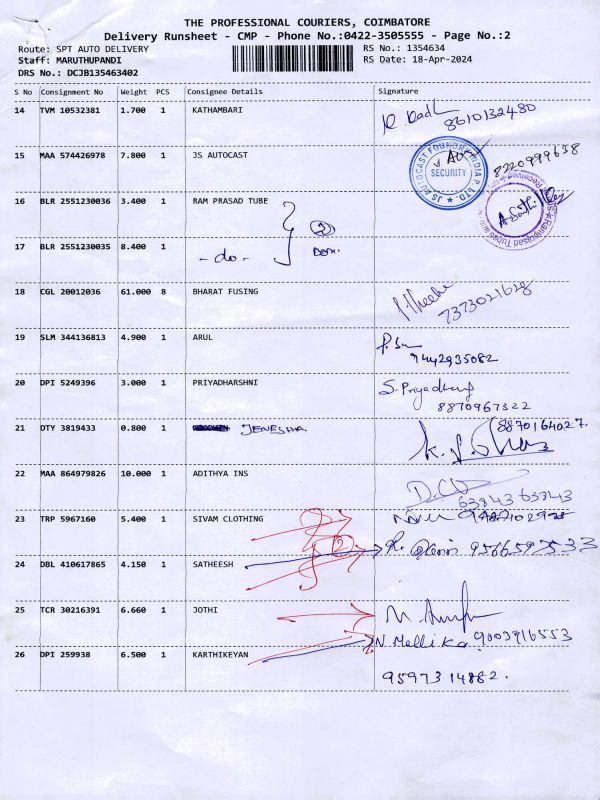 THE PROFESSIONAL COURIERS, COIMBATORE
Delivery Runsheet - CMP - Phone No.:0422-3505555 - Page No.:2
Route: SPT AUTO DELIVERY RS No.: 1354634
Staff: MARUTHUPANDI RS Date: 18-Apr-2024
DRS No.: DCJB135463402
S No Consignment No Weight PCS Consignee Details Signature
14 TVM 10532381 1.700 1 KATHAMBARI
8610132480
15 MAA 574426978 7.800 1 JS AUTOCAST
JS AUTOCAST FOUNDRY INDIA P LTD.
SECURITY
8220999638
16 BLR 2551230036 3.400 1 RAM PRASAD TUBE
Ramprasad Tubes
17 BLR 2551230035 8.400 1 - do - 2
18 CGL 20012036 61.000 8 BHARAT FUSING
7373021628
19 SLM 344136813 4.900 1 ARUL
9442935082
20 DPI 5249396 3.000 1 PRIYADHARSHNI
S. Priyadhars
8870967322
21 DTY 3819433 0.800 1 JENESHA
8870164027.
22 MAA 864979826 10.000 1 ADITHYA INS
63843 63843
23 TRP 5967160 5.400 1 SIVAM CLOTHING
2
24 DBL 410617865 4.150 1 SATHEESH
9566597533
25 TCR 30216391 6.660 1 JOTHI
N. Mellika 9003916553
26 DPI 259938 6.500 1 KARTHIKEYAN
9597314882.